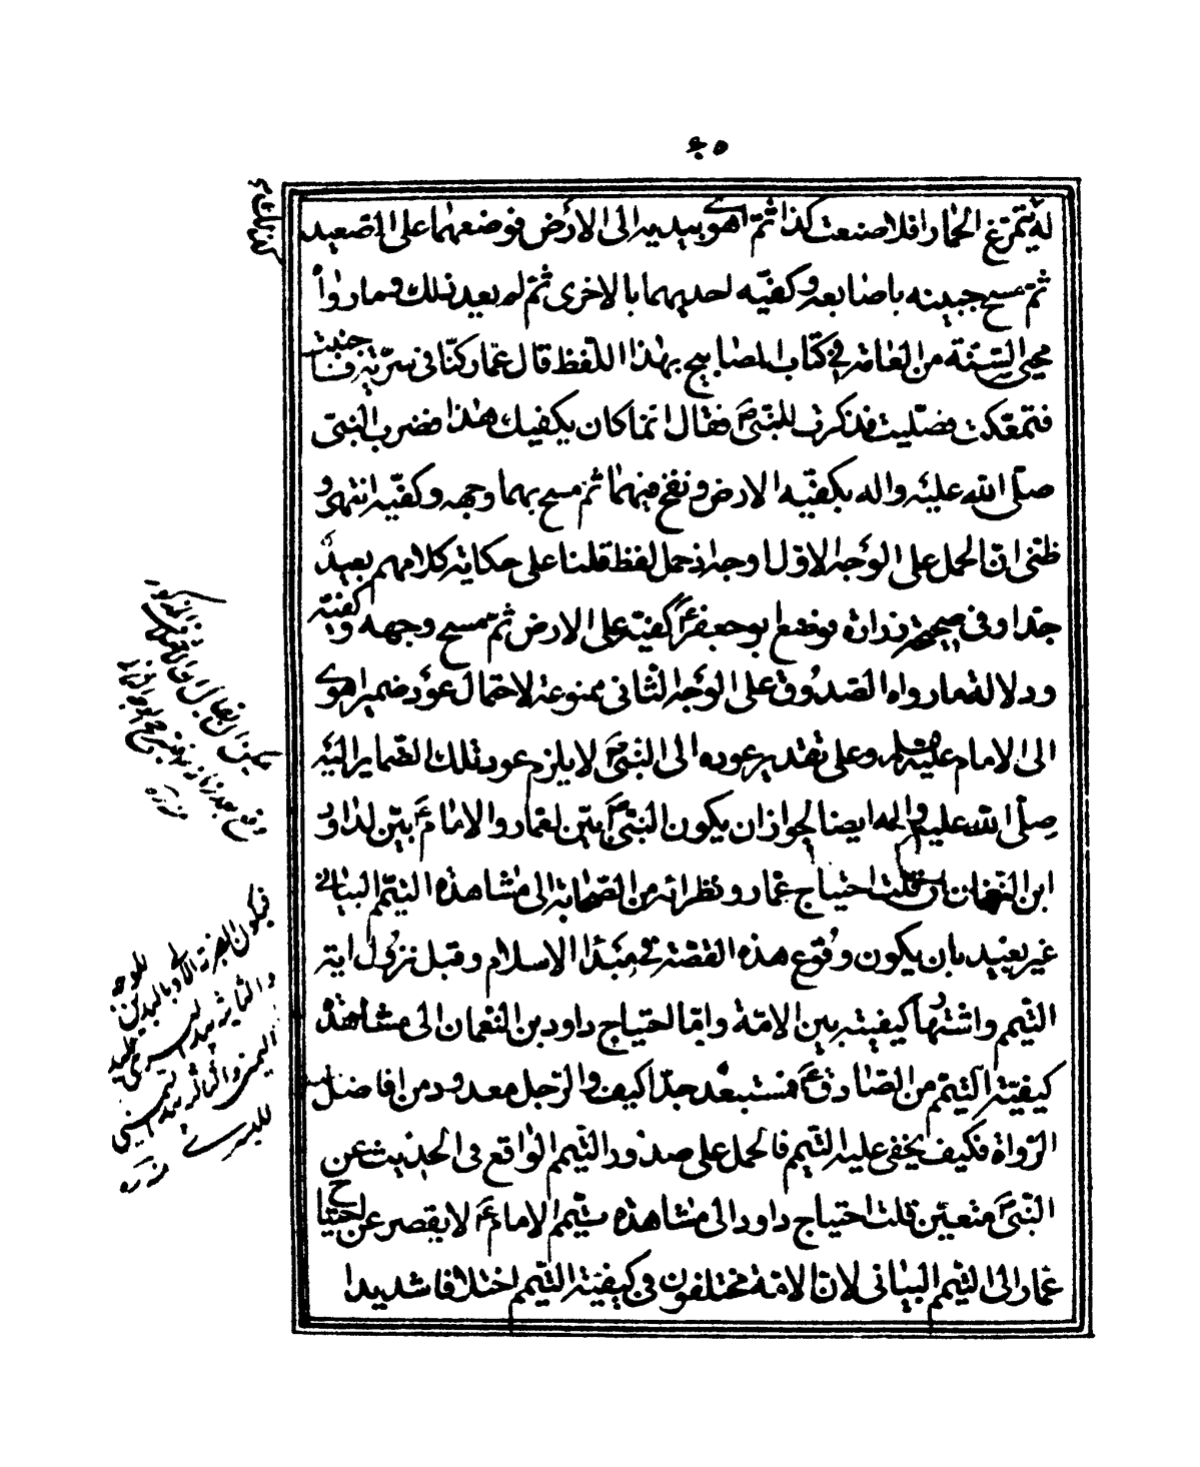 له يتمرغ الحمار افلا صنعت كذا ثم اهوى بيديه الى الارض فوضعهما على الصعيد
ثم مسح جبينه باصابعه وكفيه احديهما بالاخرى ثم لم يعد ذلك وما رواه
محيي السنة من العامة في كتاب المصابيح بهذا اللفظ قال عمار كنا في سرية فاجنبت
فتمعكت فصليت فذكرت للنبي ص فقال انما كان يكفيك هذا فضرب النبي
صلى الله عليه واله بكفيه الارض ونفخ فيهما ثم مسح بهما وجهه وكفيه انتهى و
ظني ان الحمل على الوجه الاول اوجه اذ حمل لفظ قلنا على حكاية كلامهم بعيد
جدا وفي صحيحة زرارة فوضع ابو جعفر ع كفيه على الارض ثم مسح وجهه وكفيه
ودلالة ما رواه الصدوق على الوجه الثاني ممنوعة لاحتمال عود ضمير اهوى
الى الامام عليه السلام وعلى تقدير عوده الى النبي ص لا يلزم عود تلك الضماير اليه
صلى الله عليه واله ايضا لجواز ان يكون النبي ص بين لعمار والامام ع بين لداود
ابن النعمان قلت احتياج عمار ونظرائه من الصحابة الى مشاهدة التيمم البياني
غير بعيد بان يكون وقوع هذه القصة في مبدا الاسلام وقبل نزول اية
التيمم واشتهار كيفيته بين الامة واما احتياج داود بن النعمان الى مشاهدة
كيفية التيمم من الصادق ع فمستبعد جدا كيف والرجل معدود من افاضل
الرواة فكيف يخفى عليه التيمم فالحمل على صدور التيمم الواقع في الحديث عن
النبي ص متعين قلت احتياج داود الى مشاهدة تيمم الامام ع لا يقصر عن احتياج
عمار الى التيمم البياني لان الامة مختلفون في كيفية التيمم اختلافا شديدا